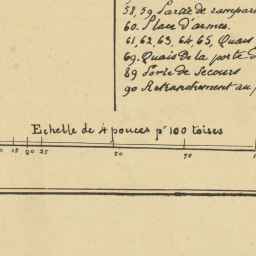 58, 59 Partie de rampar
60. Place d'armes
61, 62, 63, 64, 65, Quais
69. Quais De la porte d
89 Porte de Secours
90 Retranchement au
Echelle de 4 pouces pr 100 toises
15 20 25 50 75